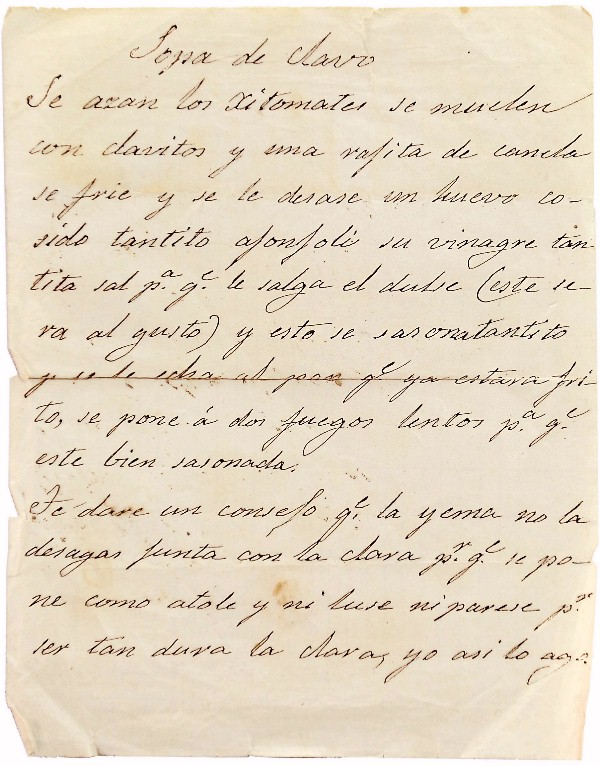 Sopa de clavo
Se azan los Xitomates se muelen
con clavitos y una rajita de canela
se frie y se le desase un huevo co-
sido tantito ajonjoli su vinagre tan
tita sal pa. qe. le salga el dulse (este se-
ra al gusto) y esto se sasonatantito
y se le echa al pan qe ya estava fri-
to, se pone á dos fuegos lentos pa. qe.
este bien sasonada.
Te dare un consejo qe. la yema no la
desagas junta con la clara pr. qe. se po-
ne como atole y ni luse ni parese pr.
ser tan dura la clara, yo asi lo ago.